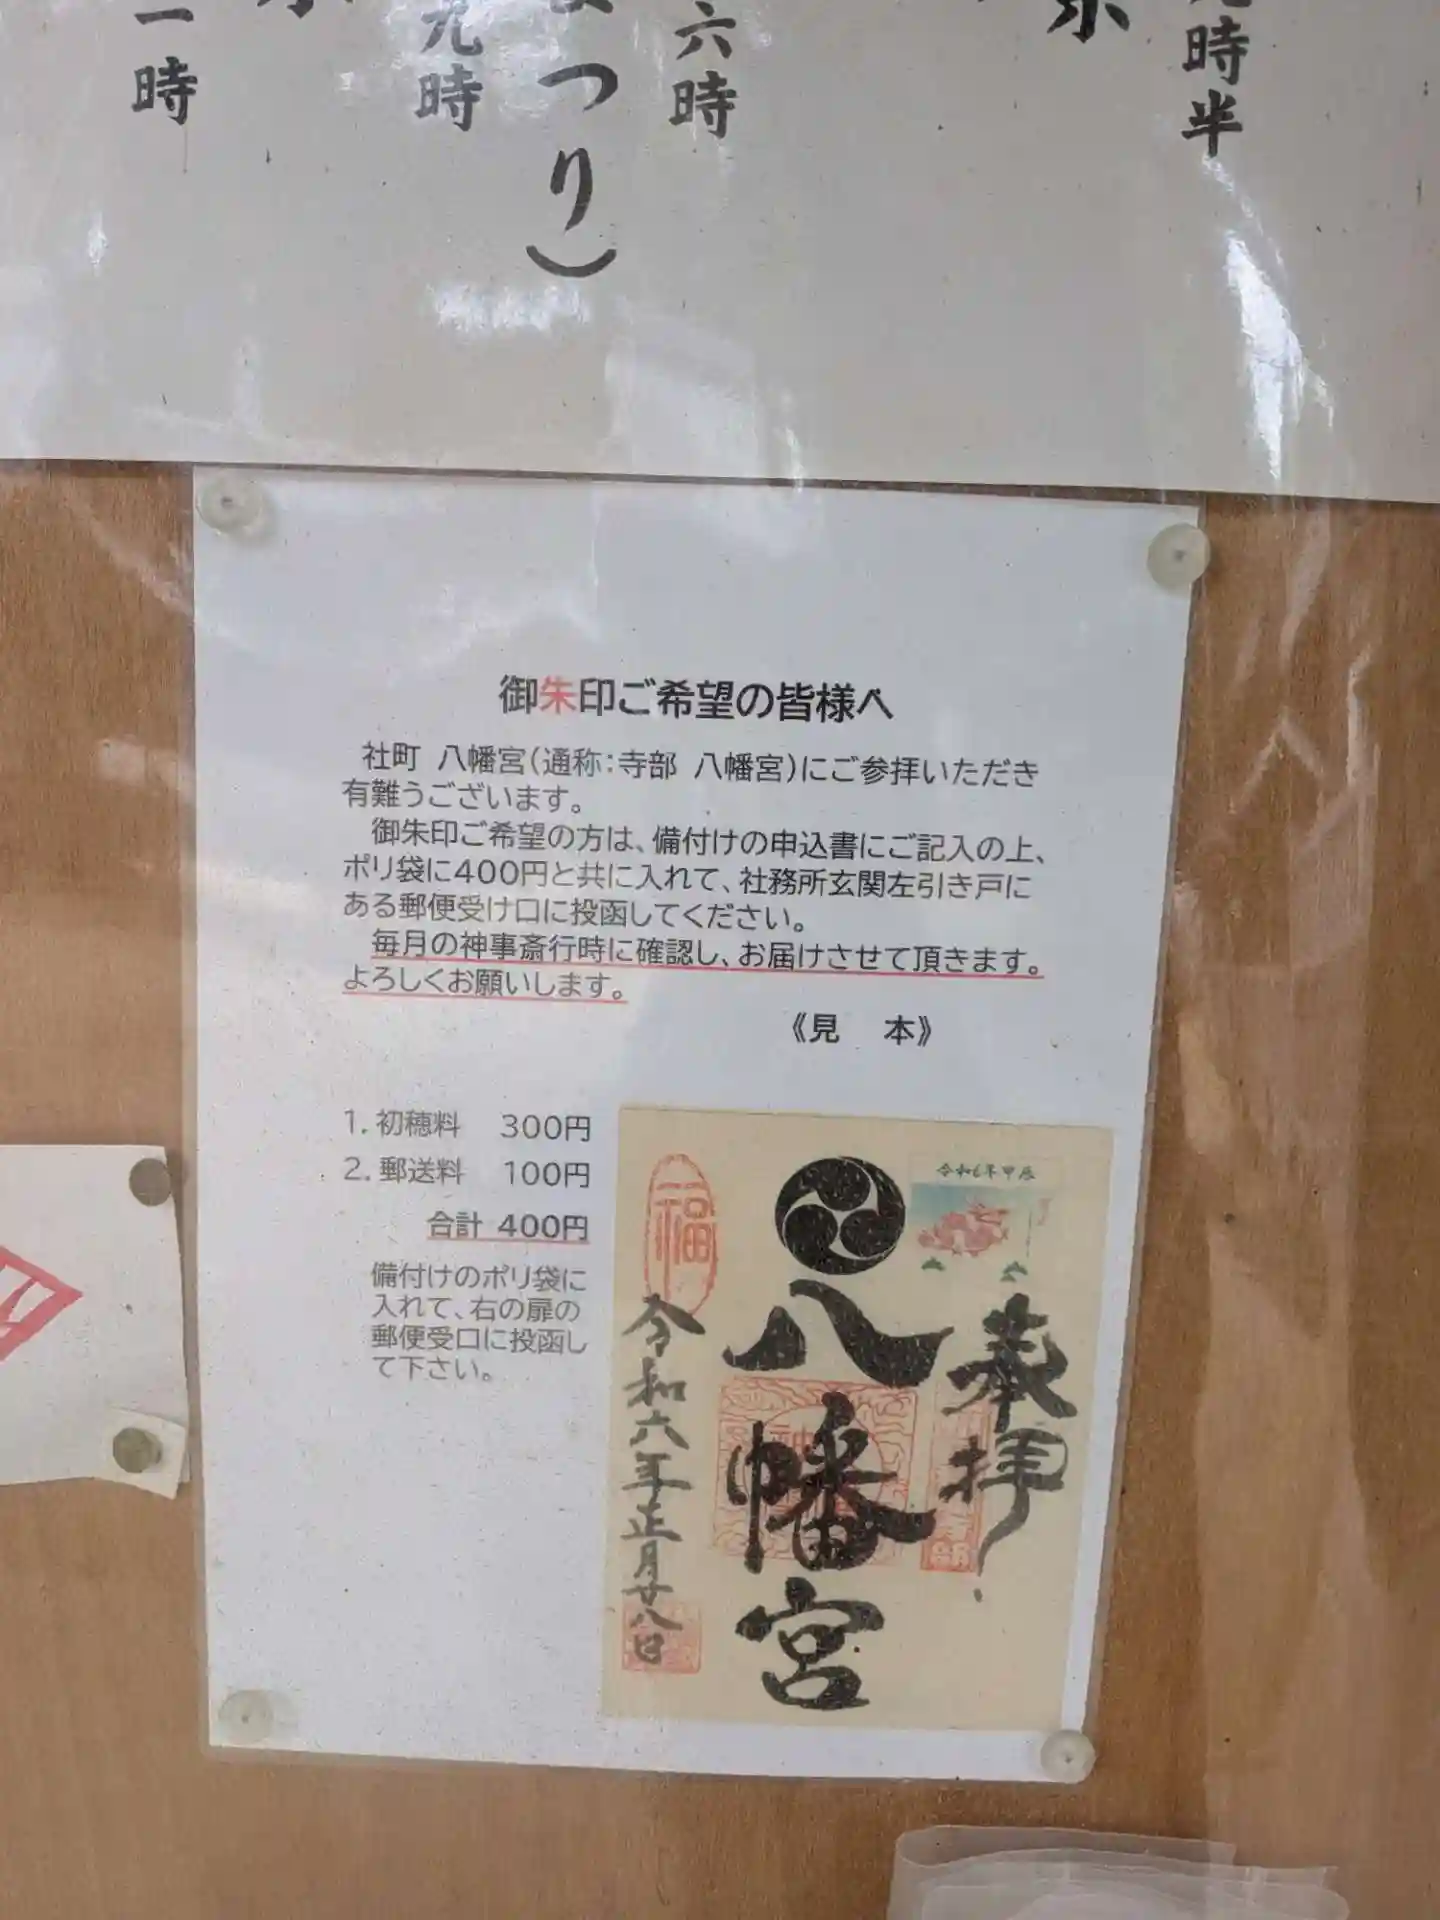 九時半
六時
つり）
九時
一時
御朱印ご希望の皆様へ
社町 八幡宮（通称：寺部 八幡宮）にご参拝いただき
有難うございます。
御朱印ご希望の方は、備付けの申込書にご記入の上、
ポリ袋に400円と共に入れて、社務所玄関左引き戸に
ある郵便受け口に投函してください。
毎月の神事斎行時に確認し、お届けさせて頂きます。
よろしくお願いします。
《見 本》
1. 初穂料 300円
2. 郵送料 100円
合計 400円
備付けのポリ袋に
入れて、右の扉の
郵便受口に投函し
て下さい。
令和6年甲辰
奉拝
八幡宮
福
令和六年正月廿八日